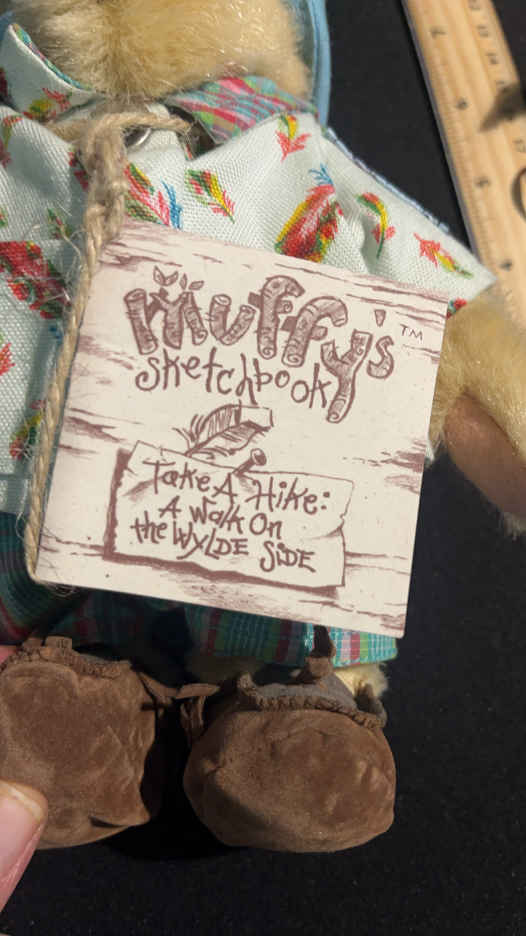 muffy's™
sketchbook
Take A Hike:
A Walk On
the WYLDE SIDE
7
8
9